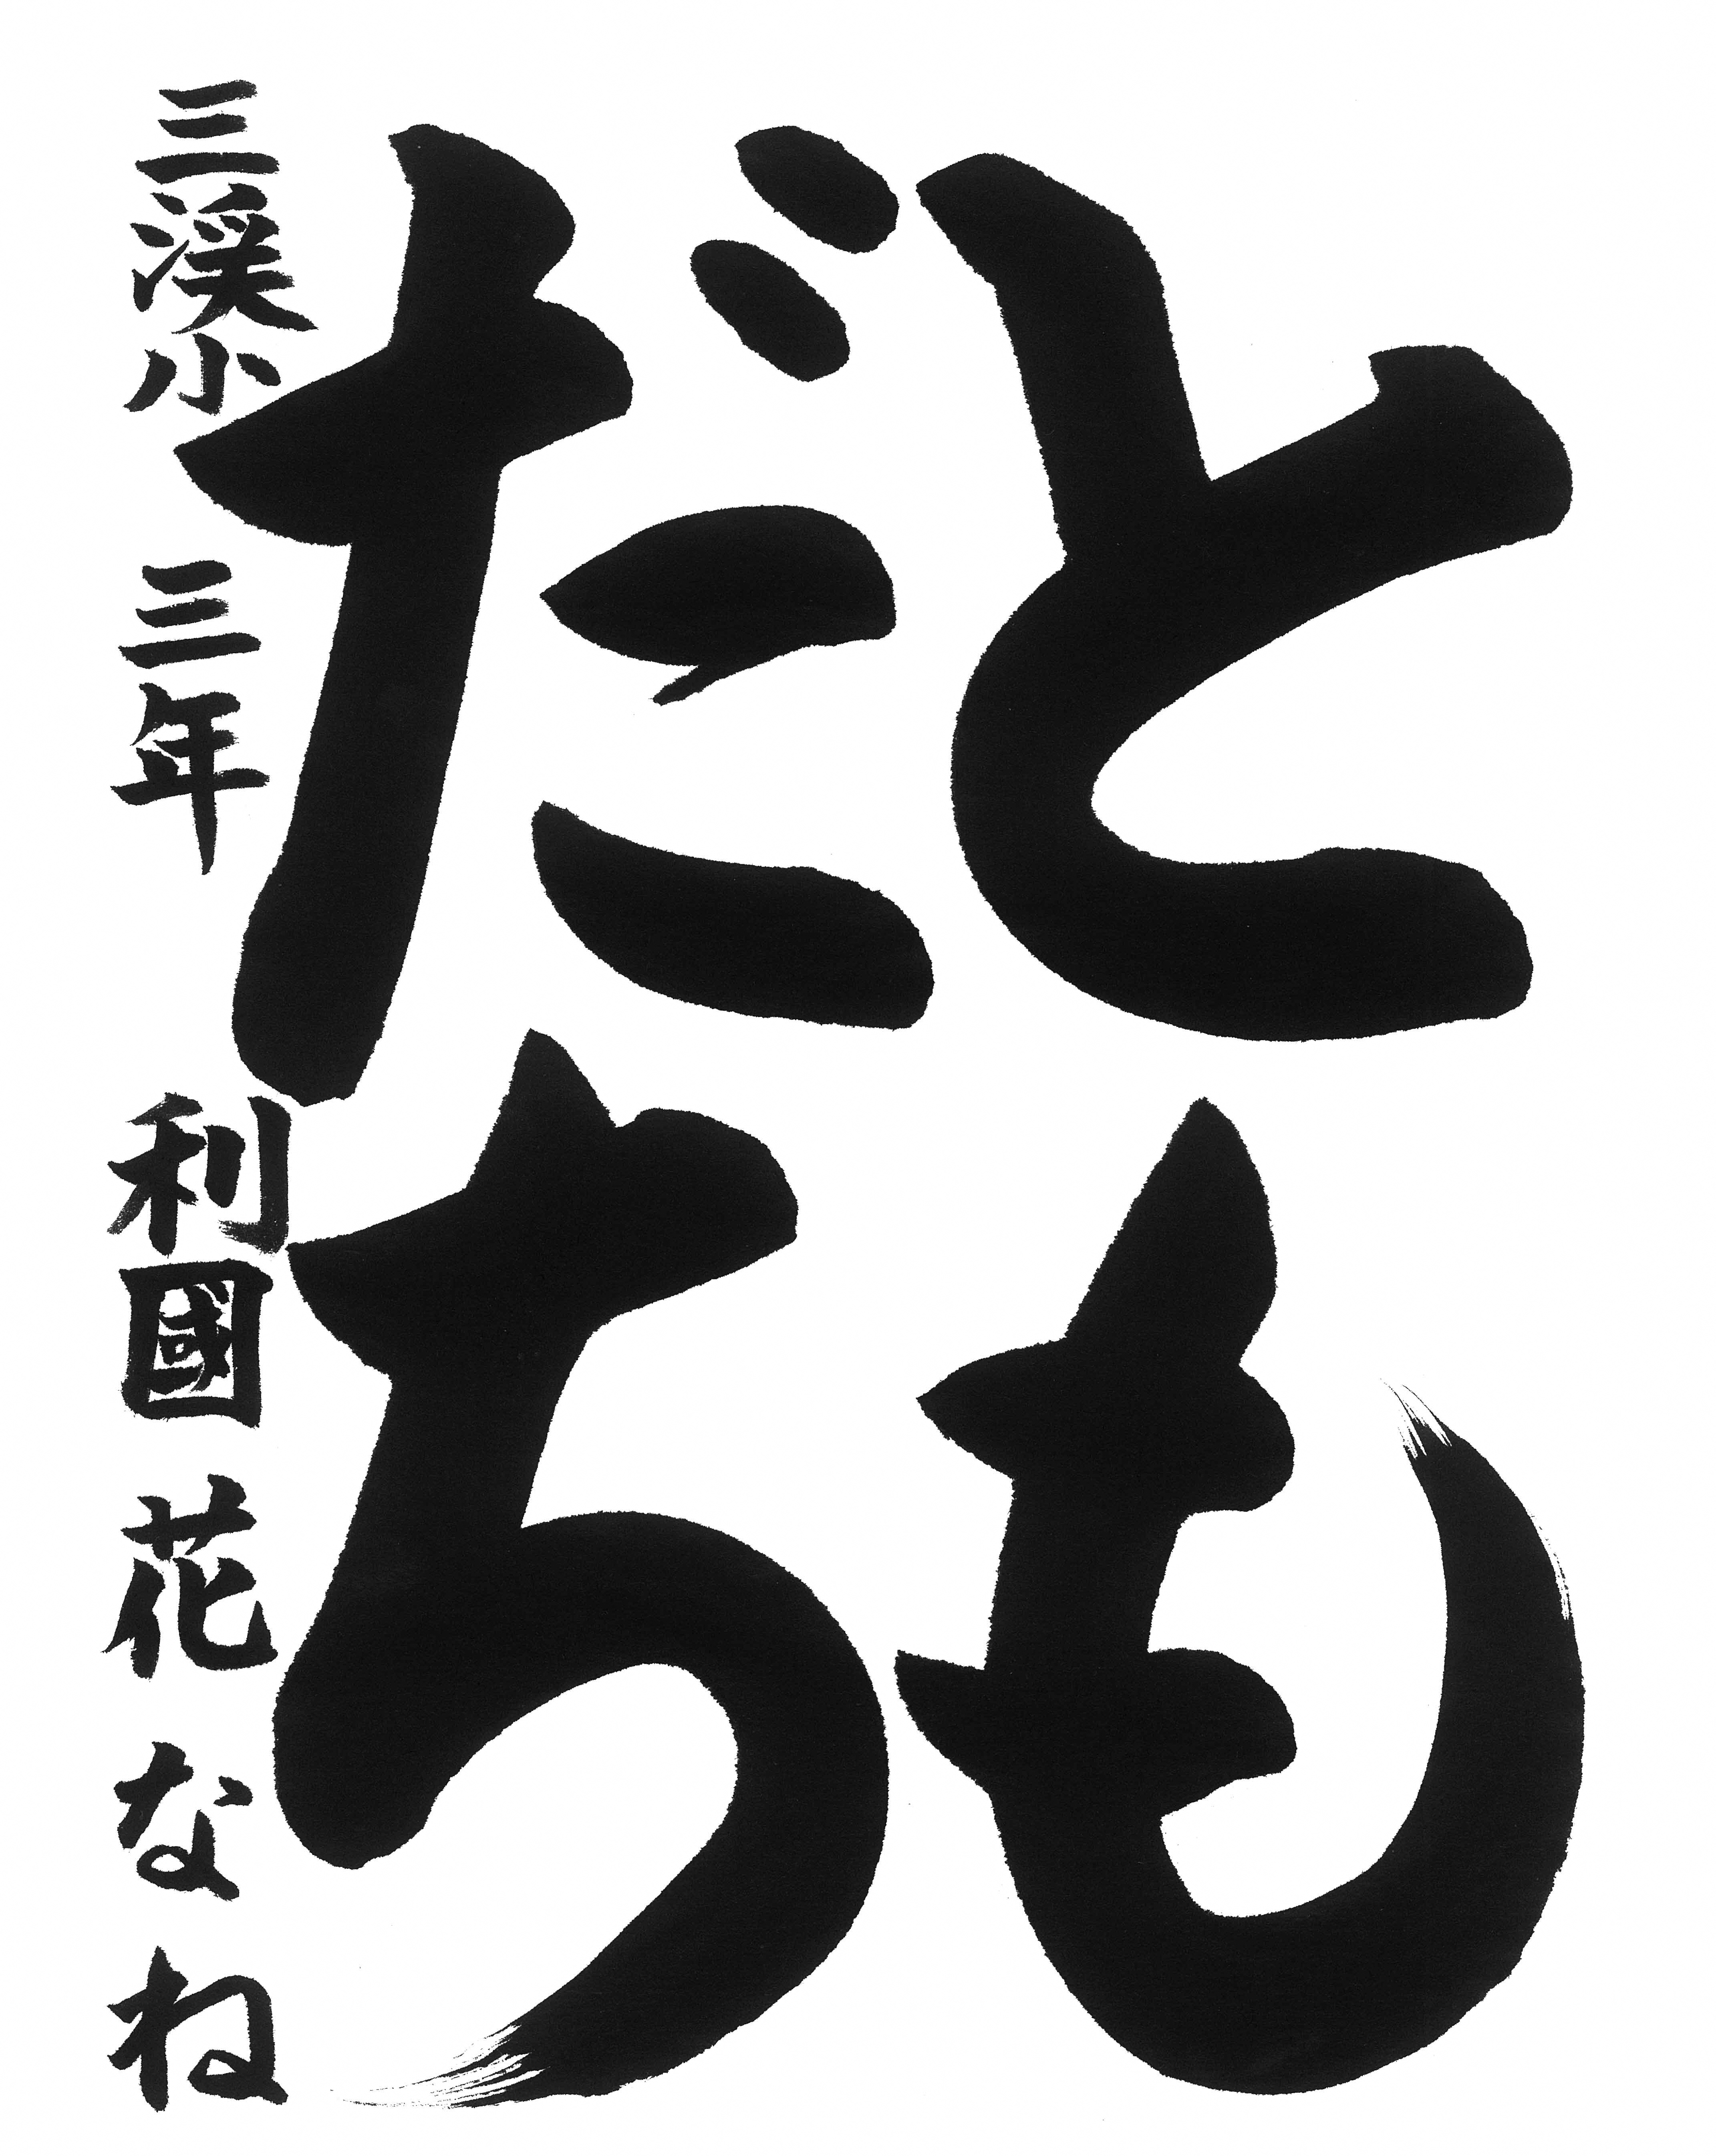 とも
だち
三渓小 三年 利國 花 なね